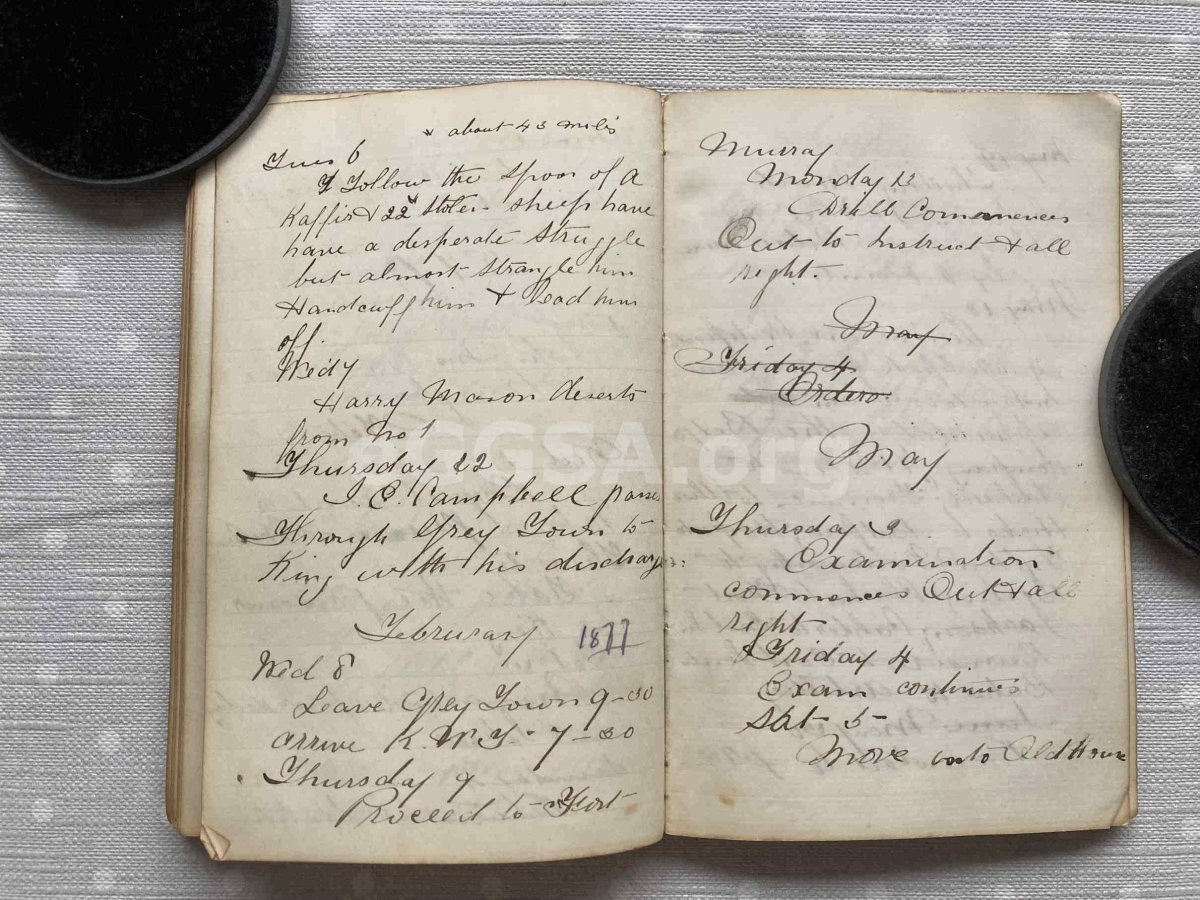 about 43 miles
Tues 6
I Follow the Spoor of a
Kaffir & 22 Stolen sheep have
have a desperate Struggle
but almost Strangle him
Handcuff him & lead him
off.
Wedy
Harry Mason deserts
from No 1
Thursday 22
J. C. Campbell passes
Through Grey Town to
King with his discharge
February 1877
Wed 8
Leave Grey Town 9-30
arrive K. W. T. 7-30
Thursday 9
Proceed to Fort
Murray
Monday
Drill Commences
Out to Instruct & all
right.
May
Friday 4
Orders
May
Thursday 3
Examination
commences Out & all
right
Friday 4
Exam continues
Sat 5
Move into Old House
eGGSA.org